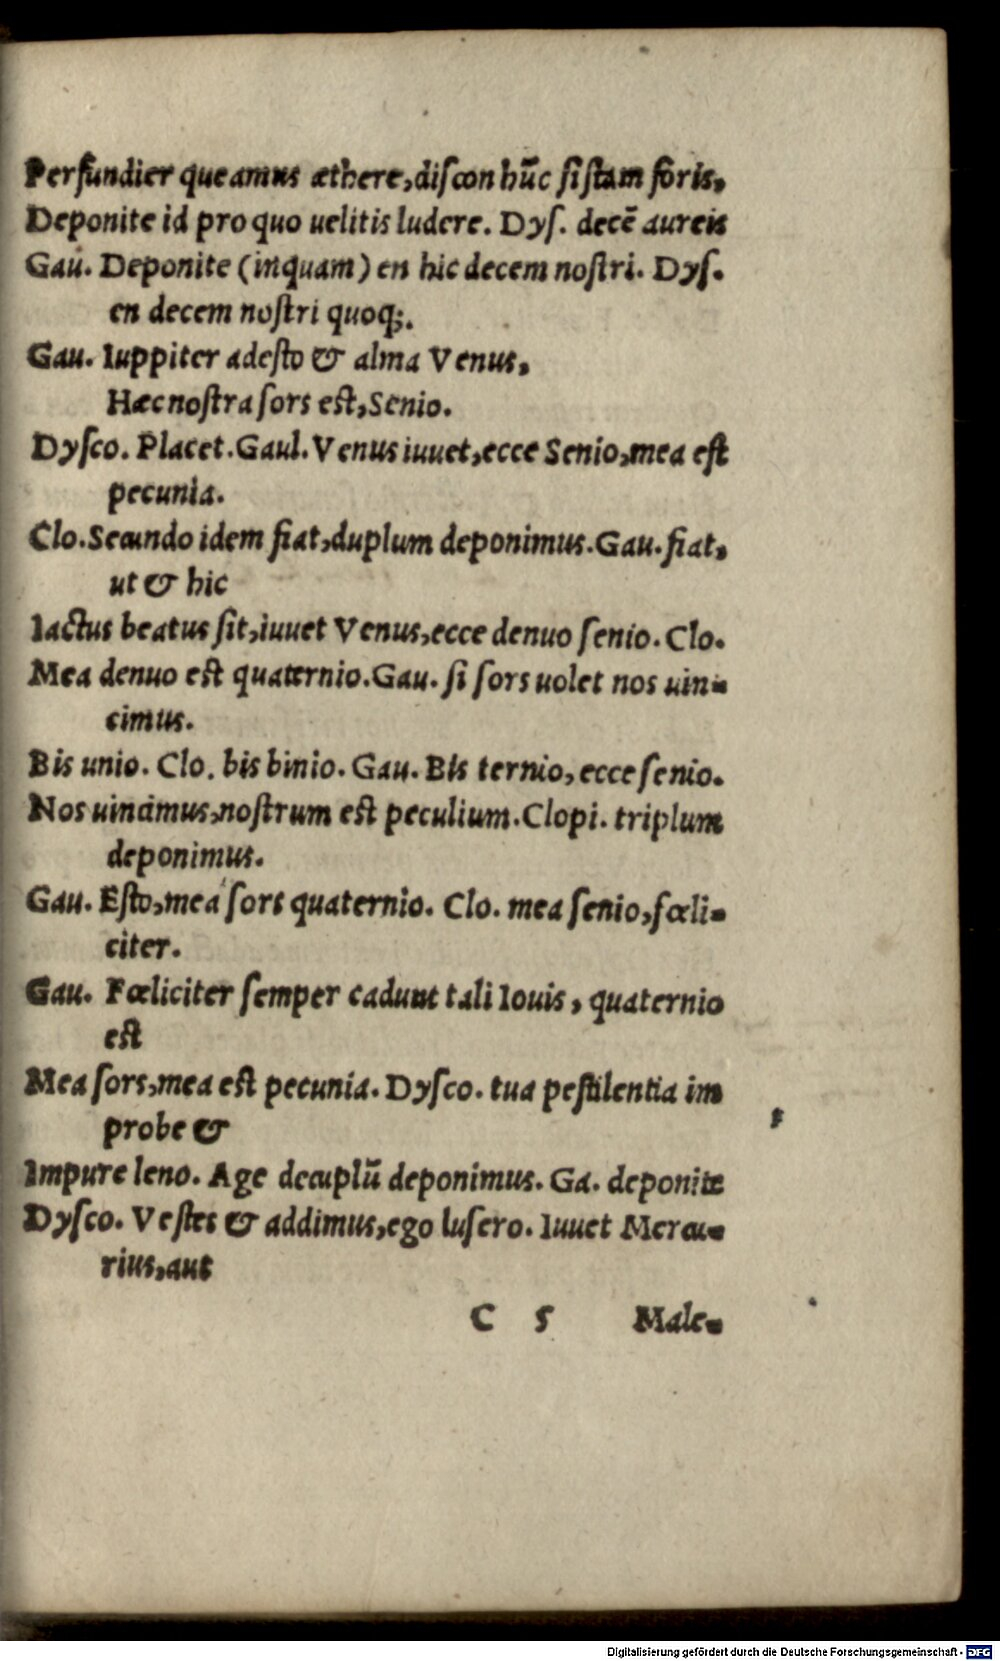 Perfundier queamus æthere, discon hūc sistam foris,
Deponite id pro quo uelitis ludere. Dys. decē aureis
Gau. Deponite (inquam) en hic decem nostri. Dys.
en decem nostri quoq;.
Gau. Iuppiter adesto & alma Venus,
Hæc nostra sors est, Senio.
Dysco. Placet. Gaul. Venus iuuet, ecce Senio, mea est
pecunia.
Clo. Secundo idem fiat, duplum deponimus. Gau. fiat,
ut & hic
Iactus beatus sit, iuuet Venus, ecce denuo senio. Clo.
Mea denuo est quaternio. Gau. si sors uolet nos uin-
cimus.
Bis unio. Clo. bis binio. Gau. Bis ternio, ecce senio.
Nos uincimus, nostrum est peculium. Clopi. triplum
deponimus.
Gau. Esto, mea sors quaternio. Clo. mea senio, fœli-
citer.
Gau. Fœliciter semper cadunt tali Iouis, quaternio
est
Mea sors, mea est pecunia. Dysco. tua pestilentia im
probe &
Impure leno. Age decuplū deponimus. Ga. deponite
Dysco. Vestes & addimus, ego lusero. Iuuet Mercu-
rius, aut
C 5 Male-
Digitalisierung gefördert durch die Deutsche Forschungsgemeinschaft - DFG